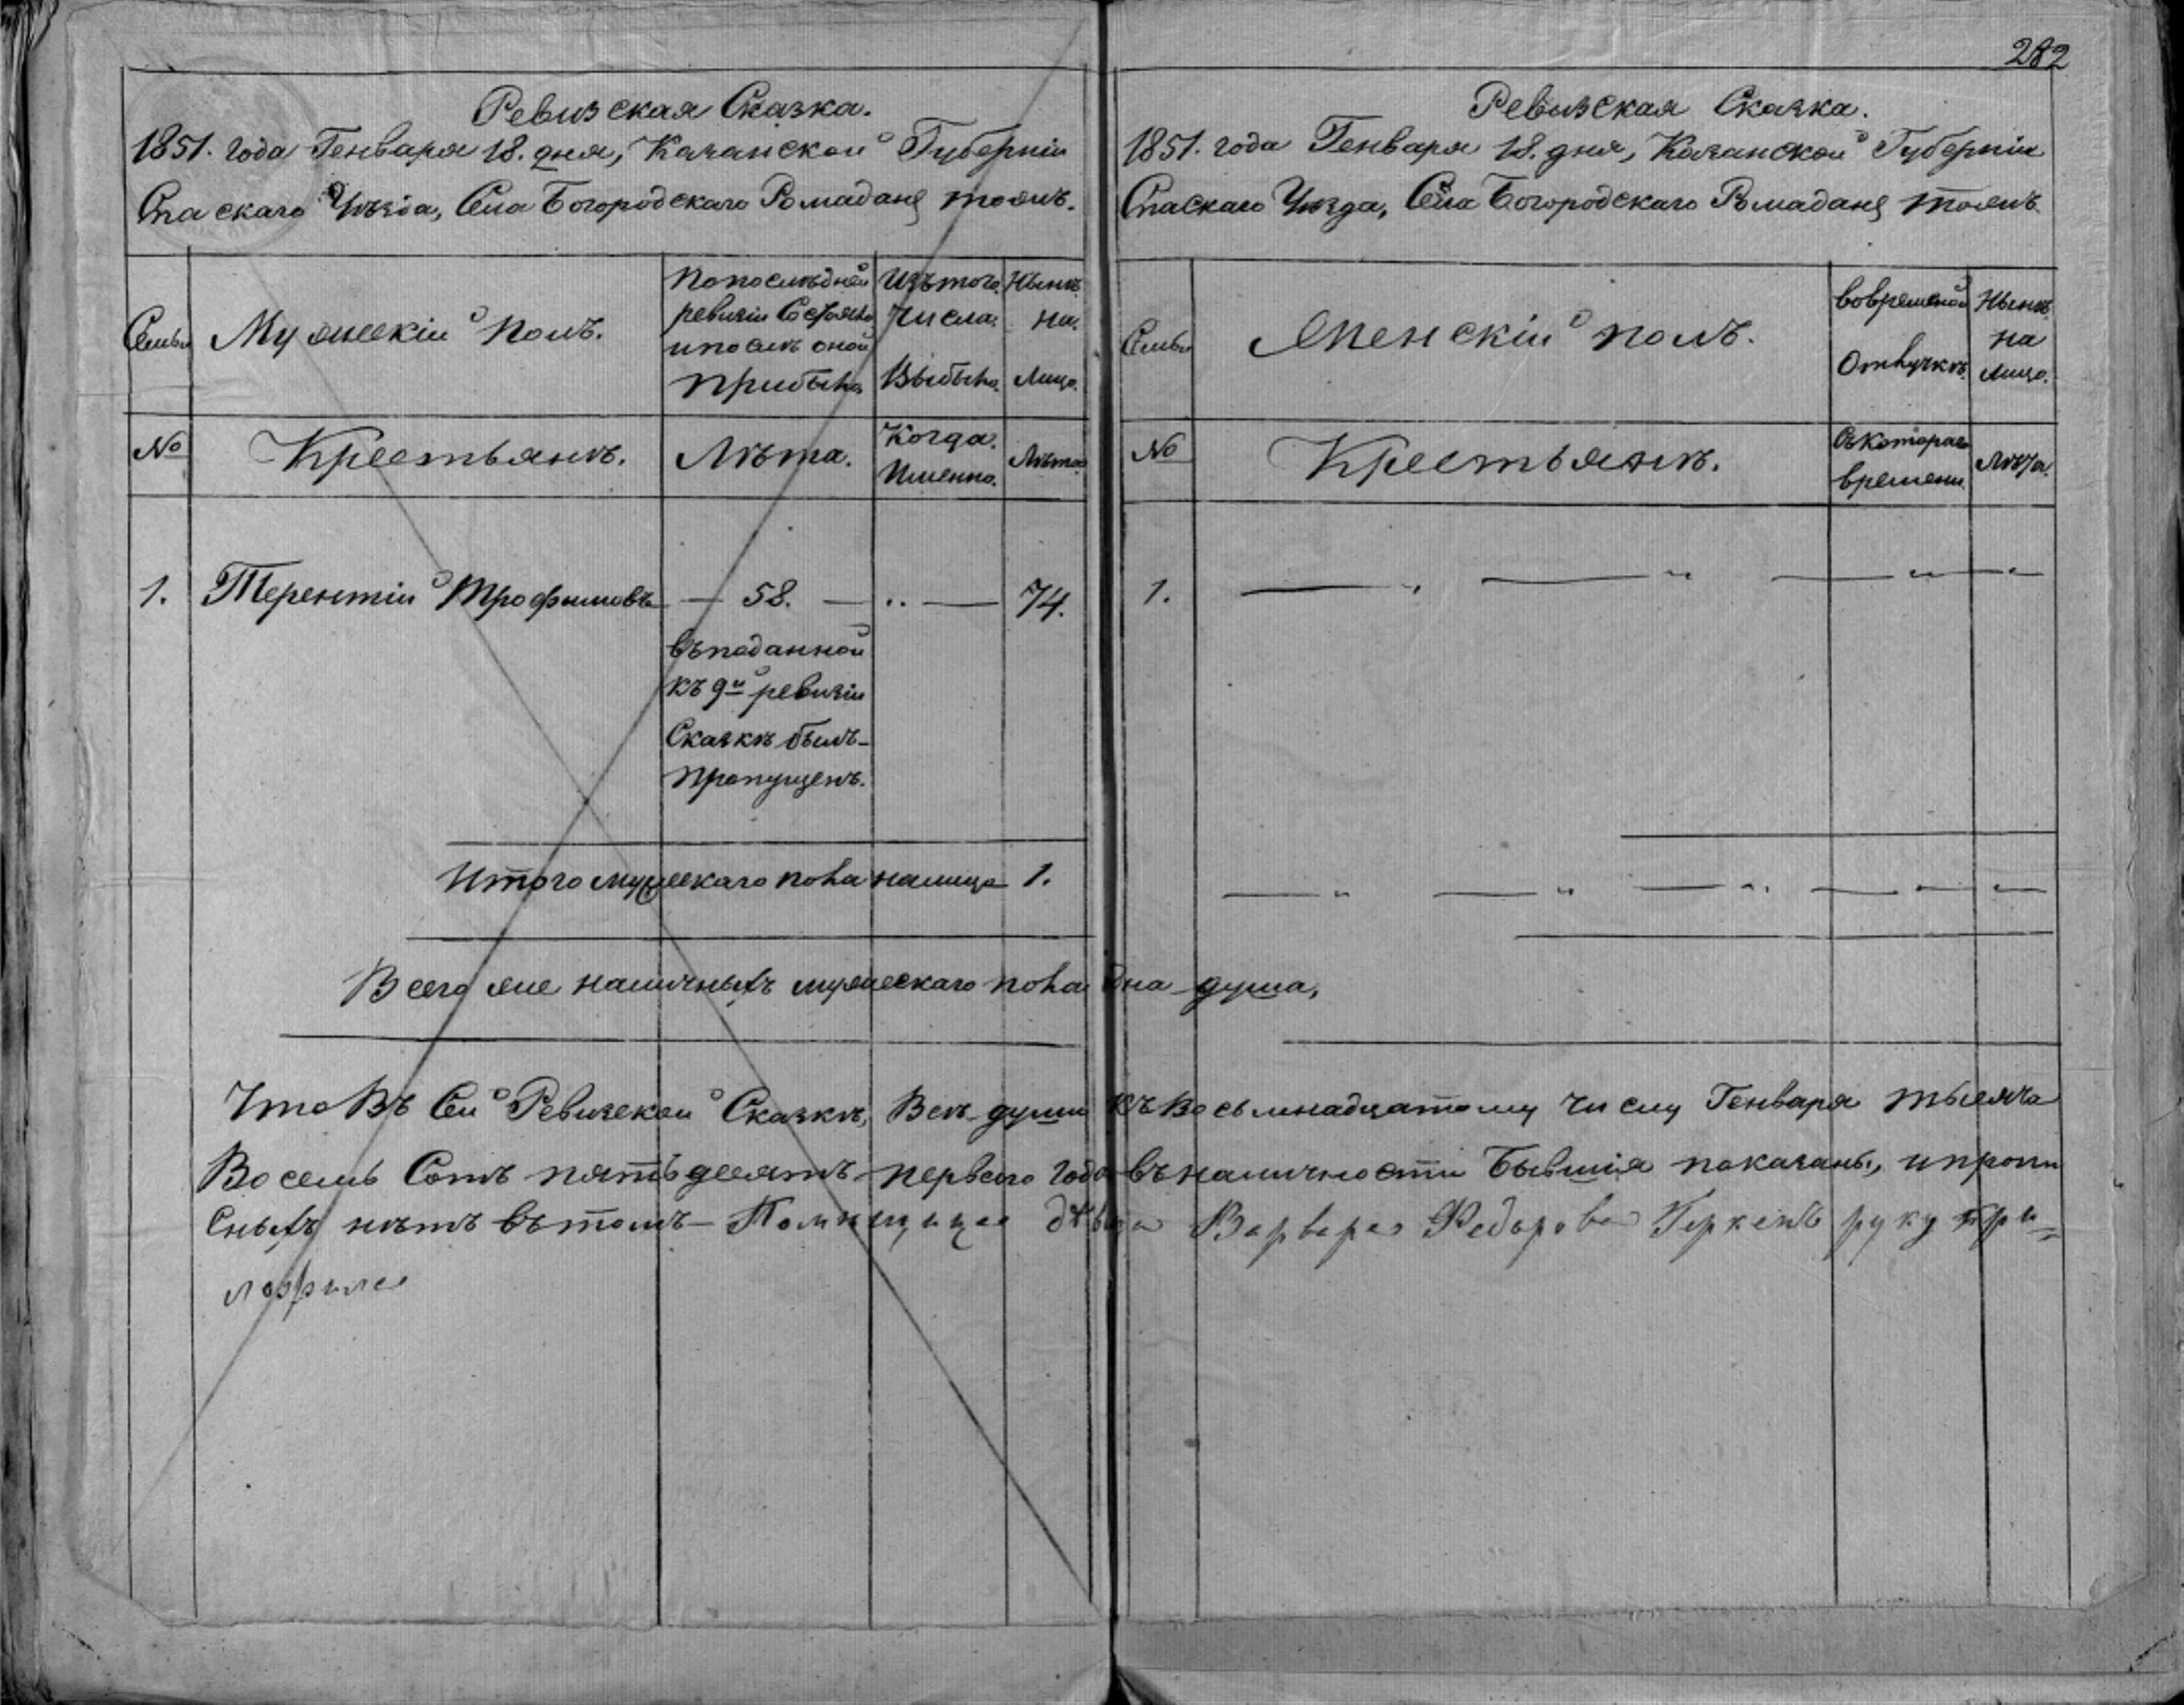 282
Ревизская Сказка.
1851. года Генваря 18. дня, Казанской Губернiи
Спаскаго Уѣзда, Села Богородскаго Ромадана тожъ.
Семьи
Мужескiй Полъ.
Попослѣдней
ревизiи Состояло
ипослѣ оной
прибыло
Изътого
Числа.
Выбыло.
Нынѣ
на.
Лицо.
№
Крестьянѣ.
Лѣта.
Когда.
Именно.
Лѣта
1. Терентiй Трофимовъ — 58. — .. — 74.
въподанной
къ 9й ревизiи
Сказкѣ былъ
пропущенъ.
Итого мужескаго пола налицо 1.
Ревизская Сказка.
1851. года Генваря 18. дня, Казанской Губернiи
Спаскаго Уѣзда, Села Богородскаго Ромадана тожъ.
Семьи
Женскiй полъ.
вовременой
Отлучкѣ.
Нынѣ
на
Лицо.
№
Крестьянѣ.
Съкотораго
времени
Лѣта.
1.
Всего же наличныхъ мужескаго пола одна душа,
Что Въ Сей Ревизской Сказкѣ, Всѣ души къ Восьмнадцатому числу Генваря тысяча
Восемь Сотъ пятьдесятъ первого года въналичности Бывшiя показаны, ипропи
сныхъ нѣтъ вътомъ Помѣщица дѣвица Варвара Федорова Геркенъ руку при=
ложила